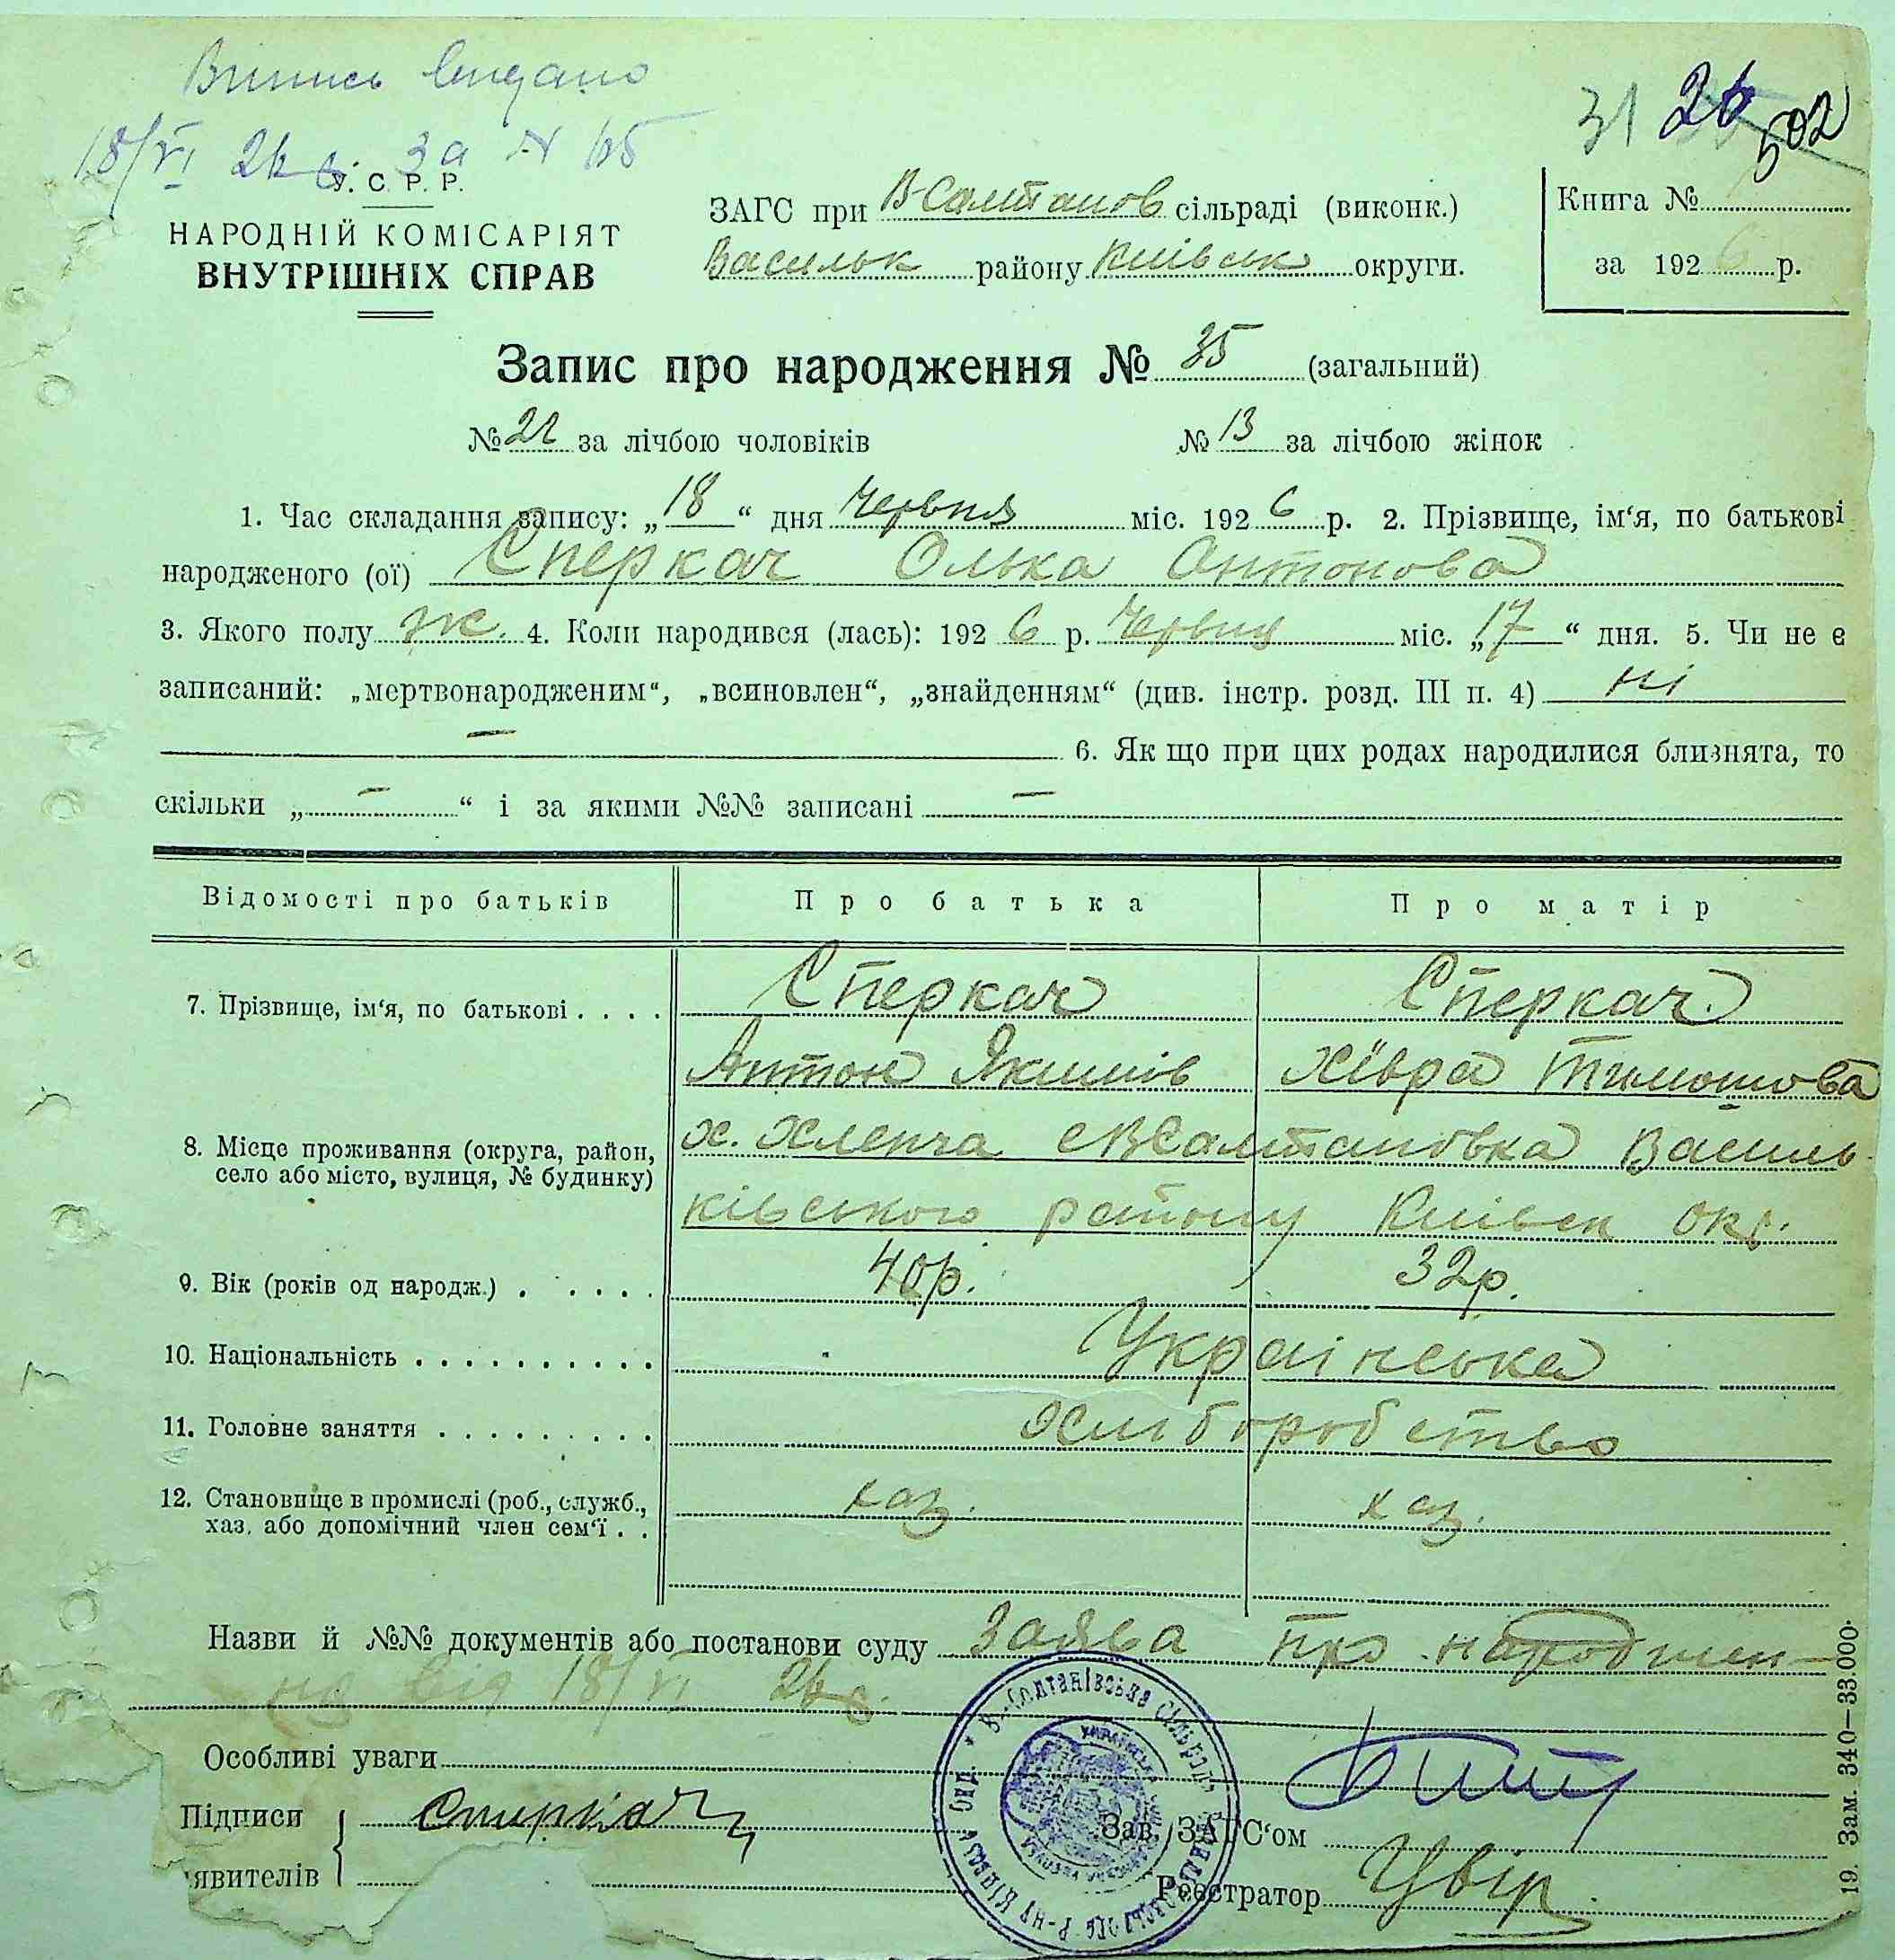 Випись видано
18/VI 26 р. За № 65
31 26 502
У. С. Р. Р.
НАРОДНІЙ КОМІСАРІЯТ
ВНУТРІШНІХ СПРАВ
ЗАГС при В-Салтанов сільраді (виконк.)
Васильк району Київськ округи.
Книга №
за 192 6 р.
Запис про народження № 35 (загальний)
№ 22 за лічбою чоловіків № 13 за лічбою жінок
1. Час складання запису: „18“ дня червня міс. 192 6 р. 2. Прізвище, ім‘я, по батькові
народженого (ої) Сперкач Олька Антонова
3. Якого полу ж. 4. Коли народився (лась): 192 6 р. Червня міс. „17“ дня. 5. Чи не є
записаний: „мертвонародженим“, „всиновлен“, „знайденням“ (див. інстр. розд. III п. 4) ні
— 6. Як що при цих родах народилися близнята, то
скільки „—“ і за якими №№ записані —
Відомості про батьків Про батька Про матір
7. Прізвище, ім‘я, по батькові . . . . Сперкач Сперкач
Антон Якимів Хівра Тимошова
8. Місце проживання (округа, район, х. Хлепча с ВСалтановка Василь
село або місто, вулиця, № будинку)
ківського району Київськ окр.
9. Вік (років од народж.) . . . . . 40р. 32р.
10. Національність . . . . . . . . . . Українська
11. Головне заняття . . . . . . . . . Хліборобство
12. Становище в промислі (роб., служб., хаз. хаз.
хаз. або допомічний член сем‘ї . .
Назви й №№ документів або постанови суду Заява про народжен-
ня від 18/VI 26 р.
Особливі уваги
Підписи Сперкач
явителів
Зав. ЗАГС‘ом
Реєстратор Цвір
19. Зам. 340—33.000.